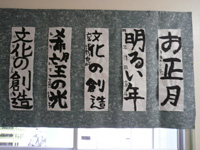 お正月
明るい年
文化の創造
希望の光
文化の創造